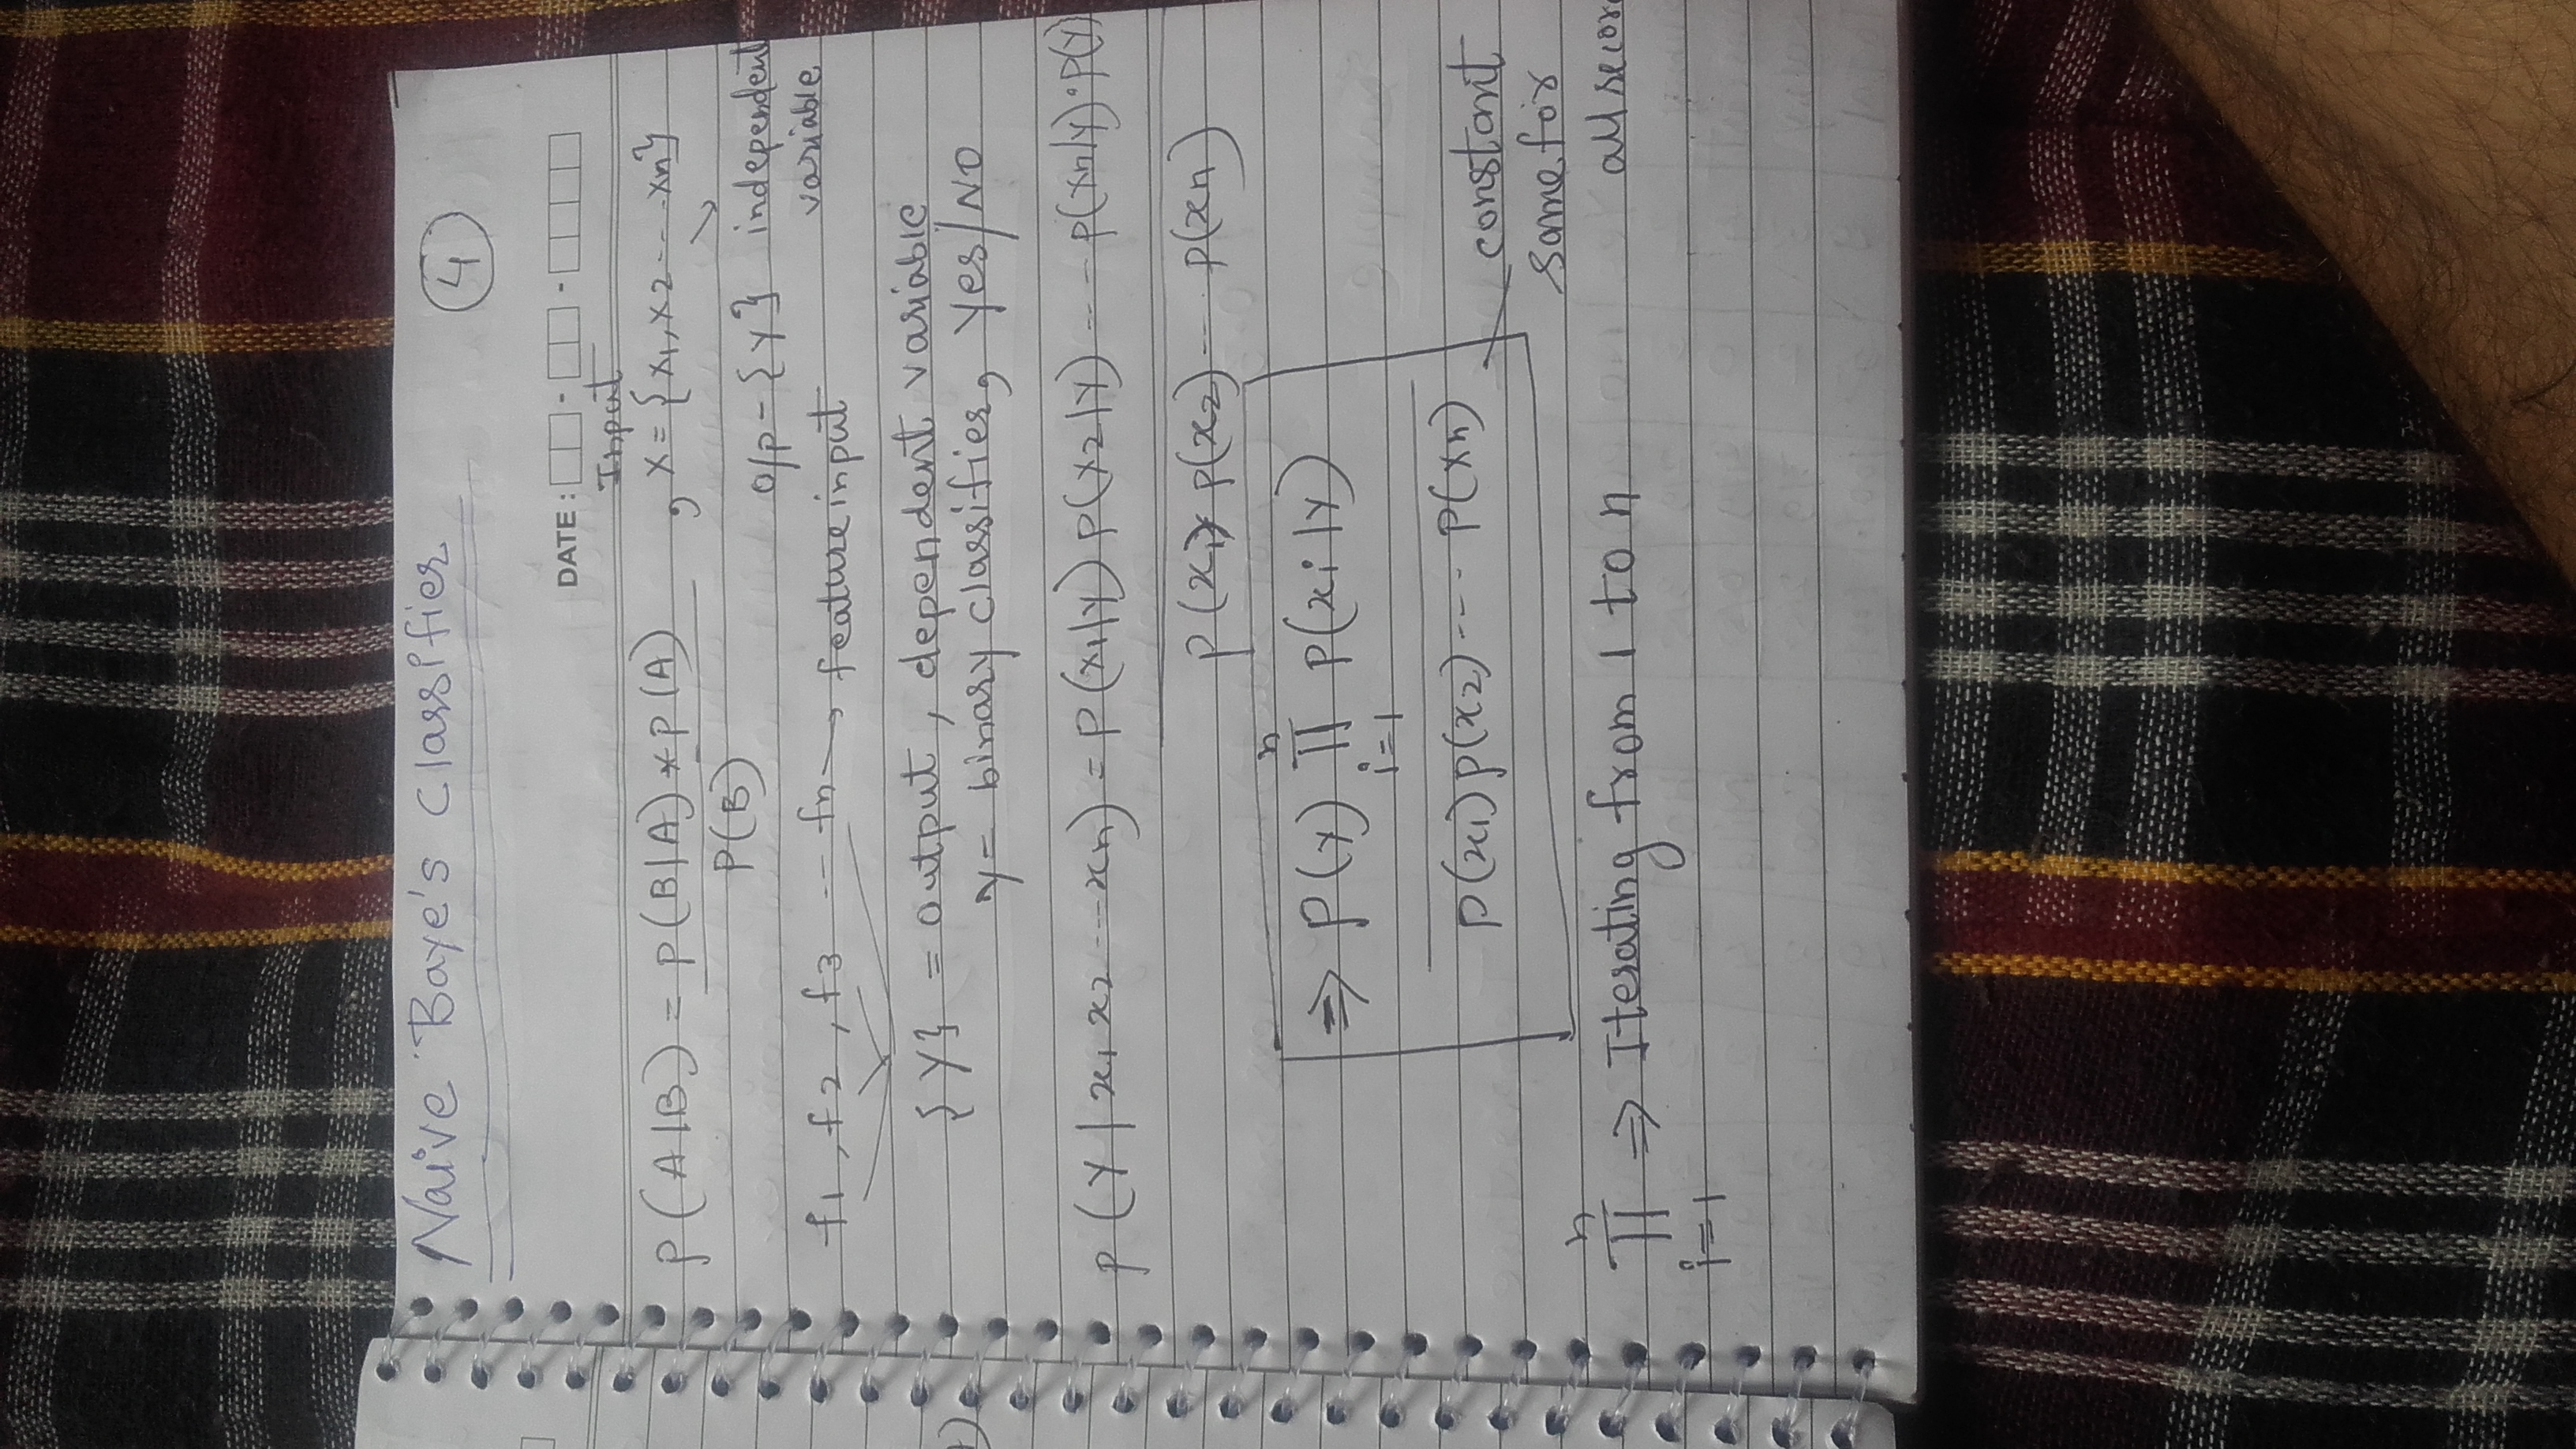 Naive Baye's Classifier
4
DATE : - -
Input
P(A|B) = P(B|A) * P(A) , X = {x1, x2 --- xn}
P(B)
O/p - {Y} independent
variable
f1, f2, f3 --- fn → feature input
{Y} = output, dependent variable
y = binary classifier, Yes/NO
P(Y | x1 x2 --- xn) = P(x1|y) P(x2|Y) --- P(xn|y) • P(y)
P(x1) P(x2) --- P(xn)
n
⇒ P(Y) Π P(xi|Y)
i=1
P(x1) P(x2) --- P(xn)
constant
same for
all recor
n
Π ⇒ Iterating from 1 to n
i=1